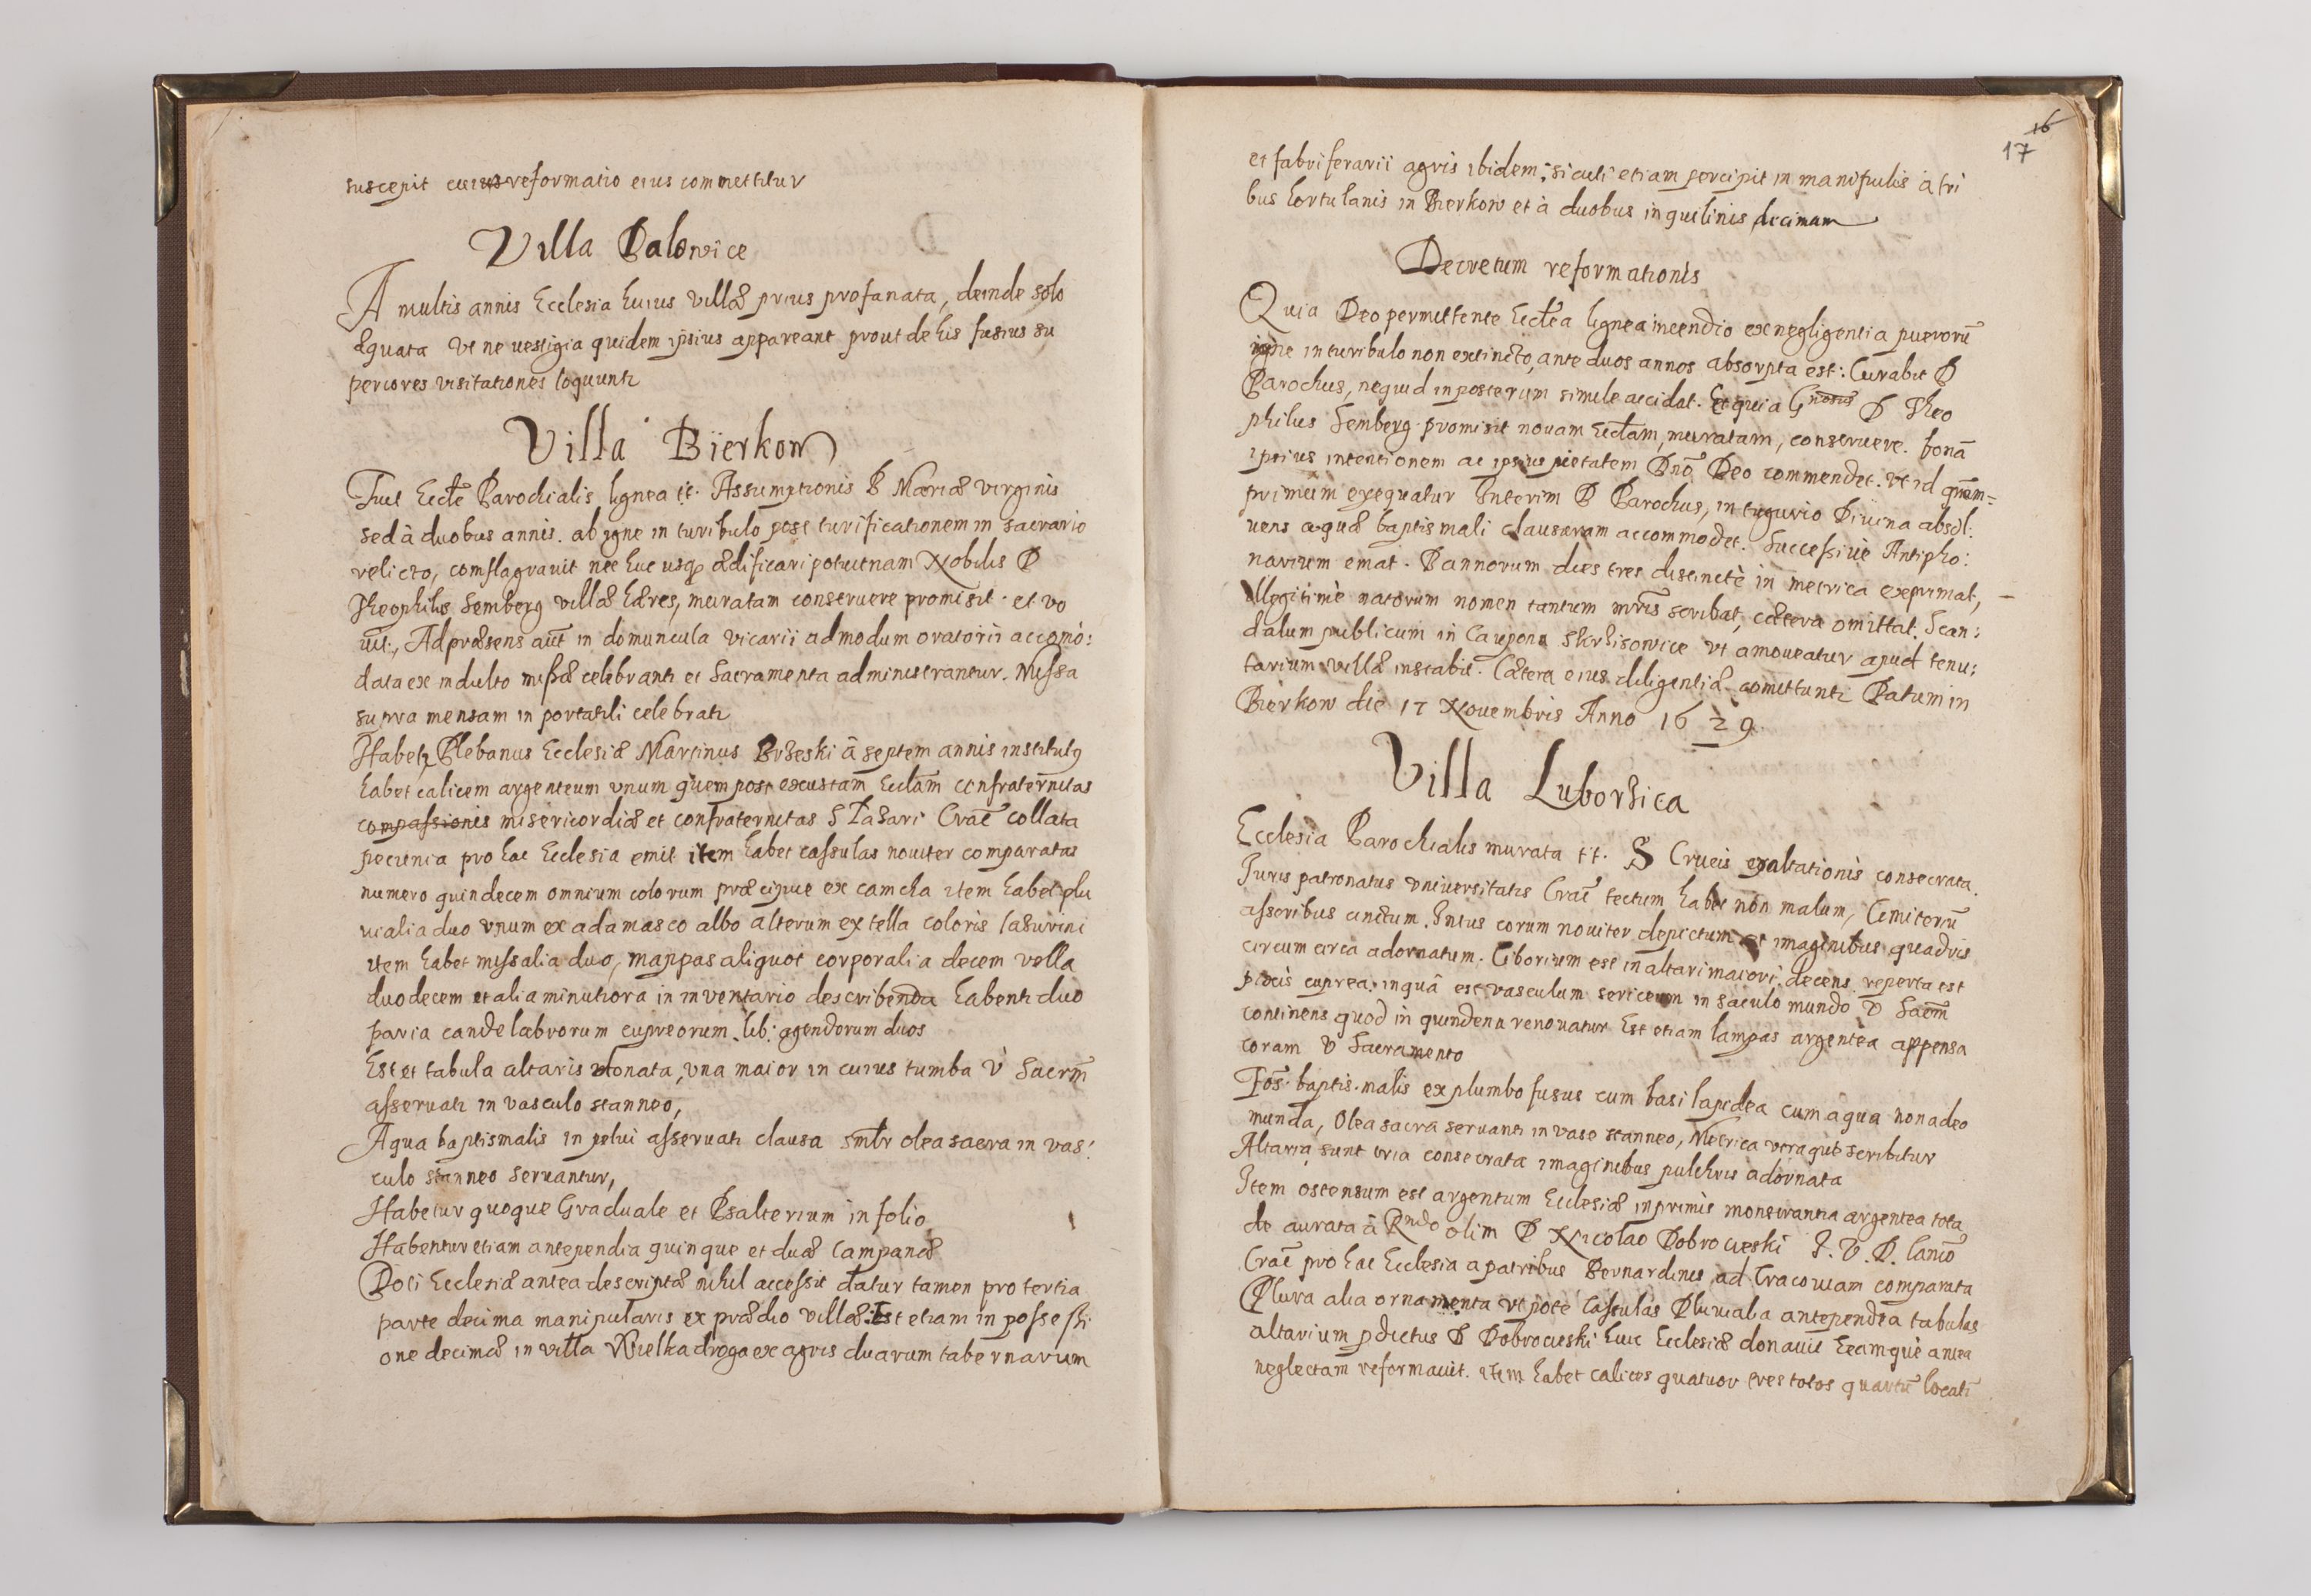 suscepit cuius reformatio eius committitur
Villa Palowice
A multis annis Ecclesia huius villæ prius profanata, deinde solo
æquata vt ne uestigia quidem ipsius appareant prout de his fusius su
periores visitationes loquunt
Villa Bierkow
Fuit Eccle Parochialis lignea tt. Assumptionis B Mariæ virginis
sed à duobus annis. ab igne in turibulo post turificationem in sacrario
relicto, conflagrauit nec huc usq ædificari potuit nam Nobilis D
Theophilus Semberg villæ hæres, muratam construere promisit. et vo
uit., Ad præsens aut in domuncula vicarii ad modum oratorii accomo:
data ex indulto missæ celebrant et Sacramenta administrantur. Missa
supra mensam in portatili celebrat
Habet Plebanus Ecclesiæ Martinus Brzeski â septem annis institut9
habet calicem argenteum vnum quem post excustam Ecclam confraternitas
compassionis misericordiæ et confraternitas S Lazari Crae collata
pecunia pro hac Ecclesia emit item habet cassulas nouiter comparatas
numero quindecem omnium colorum præcipue ex camcha item habet plu
uialia duo vnum ex adamasco albo alterum ex tella coloris lazurini
item habet missalia duo, mappas aliquot corporalia decem vella
duodecem et alia minutiora in inventario describenda habent duo
paria candelabrorum cupreorum. lib: agendorum duos
Est et tabula altaris donata, vna maior in cuius tumba V Sacrm
asseruat in vasculo stanneo,
Aqua baptismalis in pelui asseruat clausa smltr olea sacra in vas:
culo stanneo seruantur,
Habetur quoque Graduale et Psalterium in folio
Habentur etiam antependia quinque et duæ Campanæ
Doti Ecclesiæ antea descriptæ nihil accessit datur tamen pro tertia
parte decima manipularis ex prædio villæ. Est etiam in possessi
one decimæ in villa Wielka droga ex agris duarum tabernarum
16
17
et fabri ferarii agris ibidem, sicuti etiam percipit in manipulis a tri
bus hortulanis in Bierkow et à duobus inquilinis decimam
Decretum reformationis
Quia Deo permittente Ecctea lignea incendio ex negligentia pueroru
igne in turibulo non extincto, ante duos annos absorpta est: Curabit D
Parochus, nequid in posterum simile accidat. Et quia Gnosus D Theo
philus Semberg promisit nouam Ecctam, muratam, construere. bona
ipsius intentionem ac ipsius pietatem Dno Deo commendet. vt id quam=
primum exequatur Interim D Parochus, in tugurio Diuina absol:
uens aquæ baptismali clausuram accommodet. Successiue Antipho:
narium emat. Bannorum dies tres distinctè in metrica exprimat,
illegitimè natorum nomen tantum mris scribat, cætera omittat. Scan:
dalum publicum in Caupona Skrzisowice vt amoueatur apud tenu:
tarium villæ instabit. Cætera eius diligentiæ comittunt Datum in
Bierkow die 17 Nouembris Anno 1629.
Villa Luborzica
Ecclesia Parochialis murata tt. S Crucis exaltationis consecrata.
Iuris patronatus vniuersitatis Crae tectum habet non malum, Cimiteriu
asseribus cinctum. Intus corum nouiter depictum et imaginibus quadris
circum circa adornatum. Ciborium est in altari maiori, decens reperta est
pixis cuprea. in quâ est vasculum sericeum in saculo mundo V Saem
continens quod in quindena renouatur Est etiam lampas argentea appensa
coram V Sacramento
Fos baptis malis ex plumbo fusus cum basi lapidea cum aqua non adeo
munda, Olea sacra seruant in vase stanneo, Metrica vtraque scribitur
Altaria sunt tria consecrata imaginibus pulchris adornata
Item ostensum est argentum Ecclesiæ inprimis monstrantia argentea tota
de aurata à Rndo olim D Nicolao Dobrocieski I. V. D. Canco
Crae pro hac Ecclesia a patribus Bernardinis ad Cracouiam comparata
Plura alia ornamenta vt pote Cassulas Pluuialia antependia tabulas
altarium pdictus D Dobrocieski huic Ecclesiæ donauit Eamquè antea
neglectam reformauit. item habet calices quatuor tres totos quartu locati